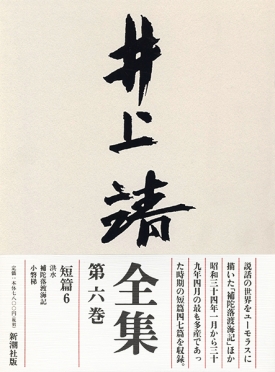 井上靖
全集
第六巻
説話の世界をユーモラスに
描いた「補陀落渡海記」ほか
昭和三十四年一月から三十
九年四月の最も多産であっ
た時期の短篇四七篇を収録。
短篇6
洪水
補陀落渡海記
小磐梯
新潮社版